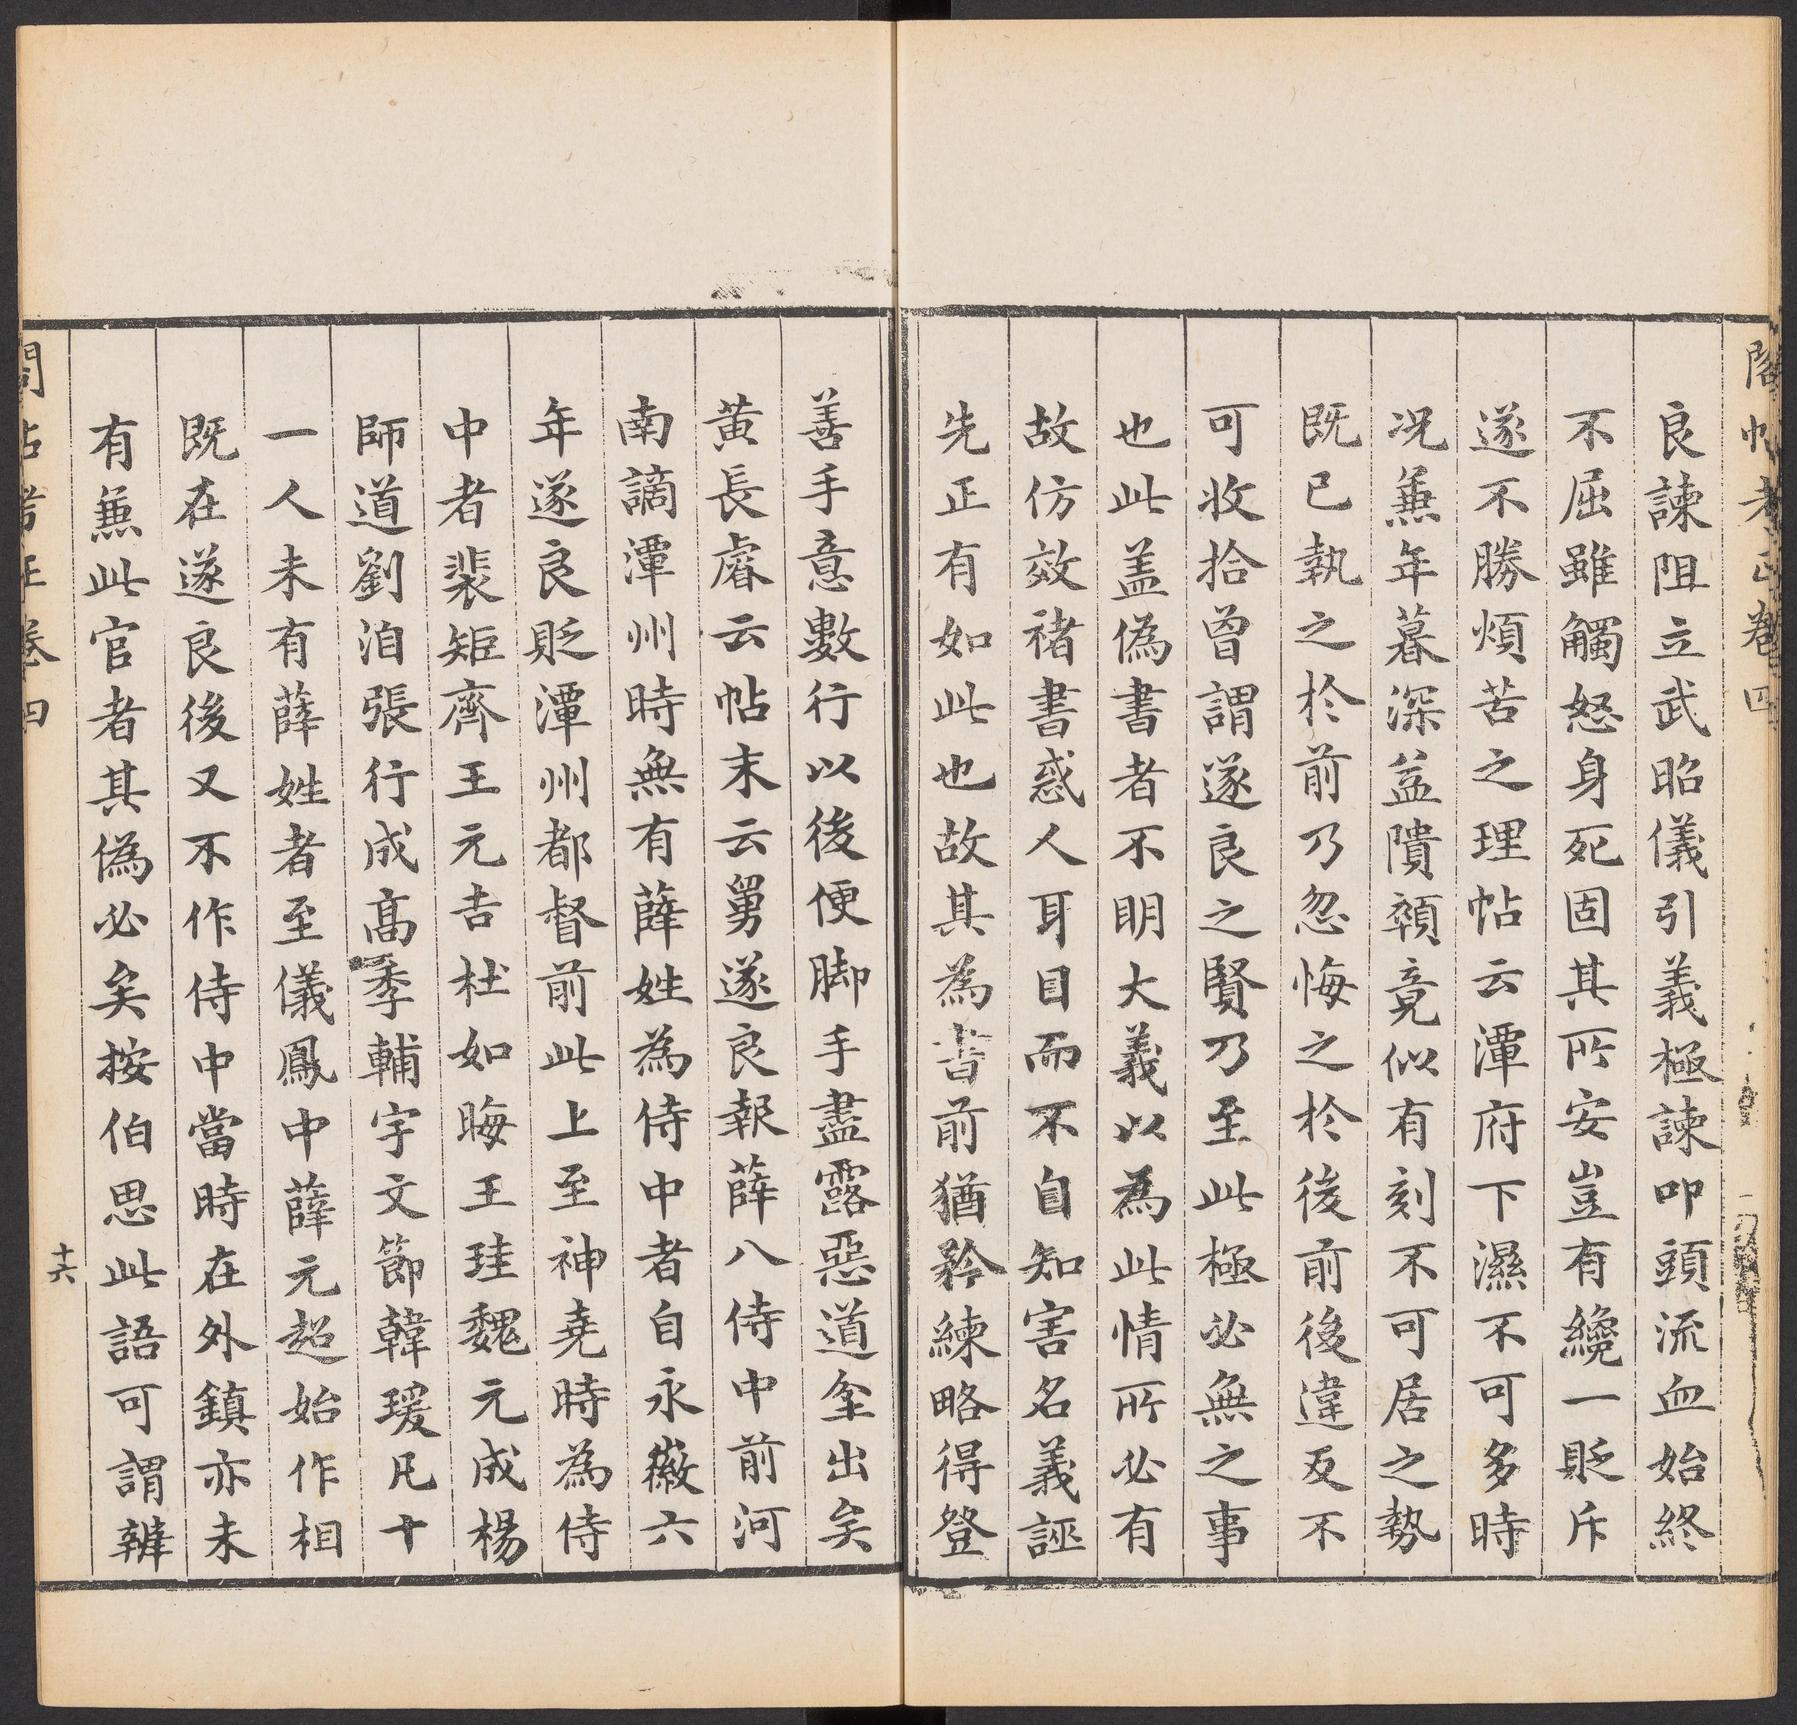 閣帖考正卷四
良諫阻立武昭儀引義極諫叩頭流血始終
不屈雖觸怒身死固其所安豈有纔一貶斥
遂不勝煩苦之理帖云潭府下濕不可多時
况蕉年暮深益隤顇竟似有刻不可居之勢
既已執之於前乃忽悔之於後前後違反不
可收拾曾謂遂良之賢乃至此極必無之事
也此盖偽書者不明大義以為此情所必有
故仿效褚書惑人耳目而不自知害名義誣
先正有如此也故其為書前猶矜練略得登
善手意數行以後便脚手盡露惡道坌出矣
黄長睿云帖末云舅遂良報薛八侍中前河
南謫潭州時無有薛姓為侍中者自永徽六
年遂良貶潭州都督前此上至神堯時為侍
中者裴矩齊王元吉杜如晦王珪魏元成楊
師道劉洎張行成高季輔宇文節韓瑗凡十
一人未有薛姓者至儀鳳中薛元超始作相
既在遂良後又不作侍中當時在外鎮亦未
有蕉此官者其偽必矣按伯思此語可謂辨
閣帖考正卷四
十六